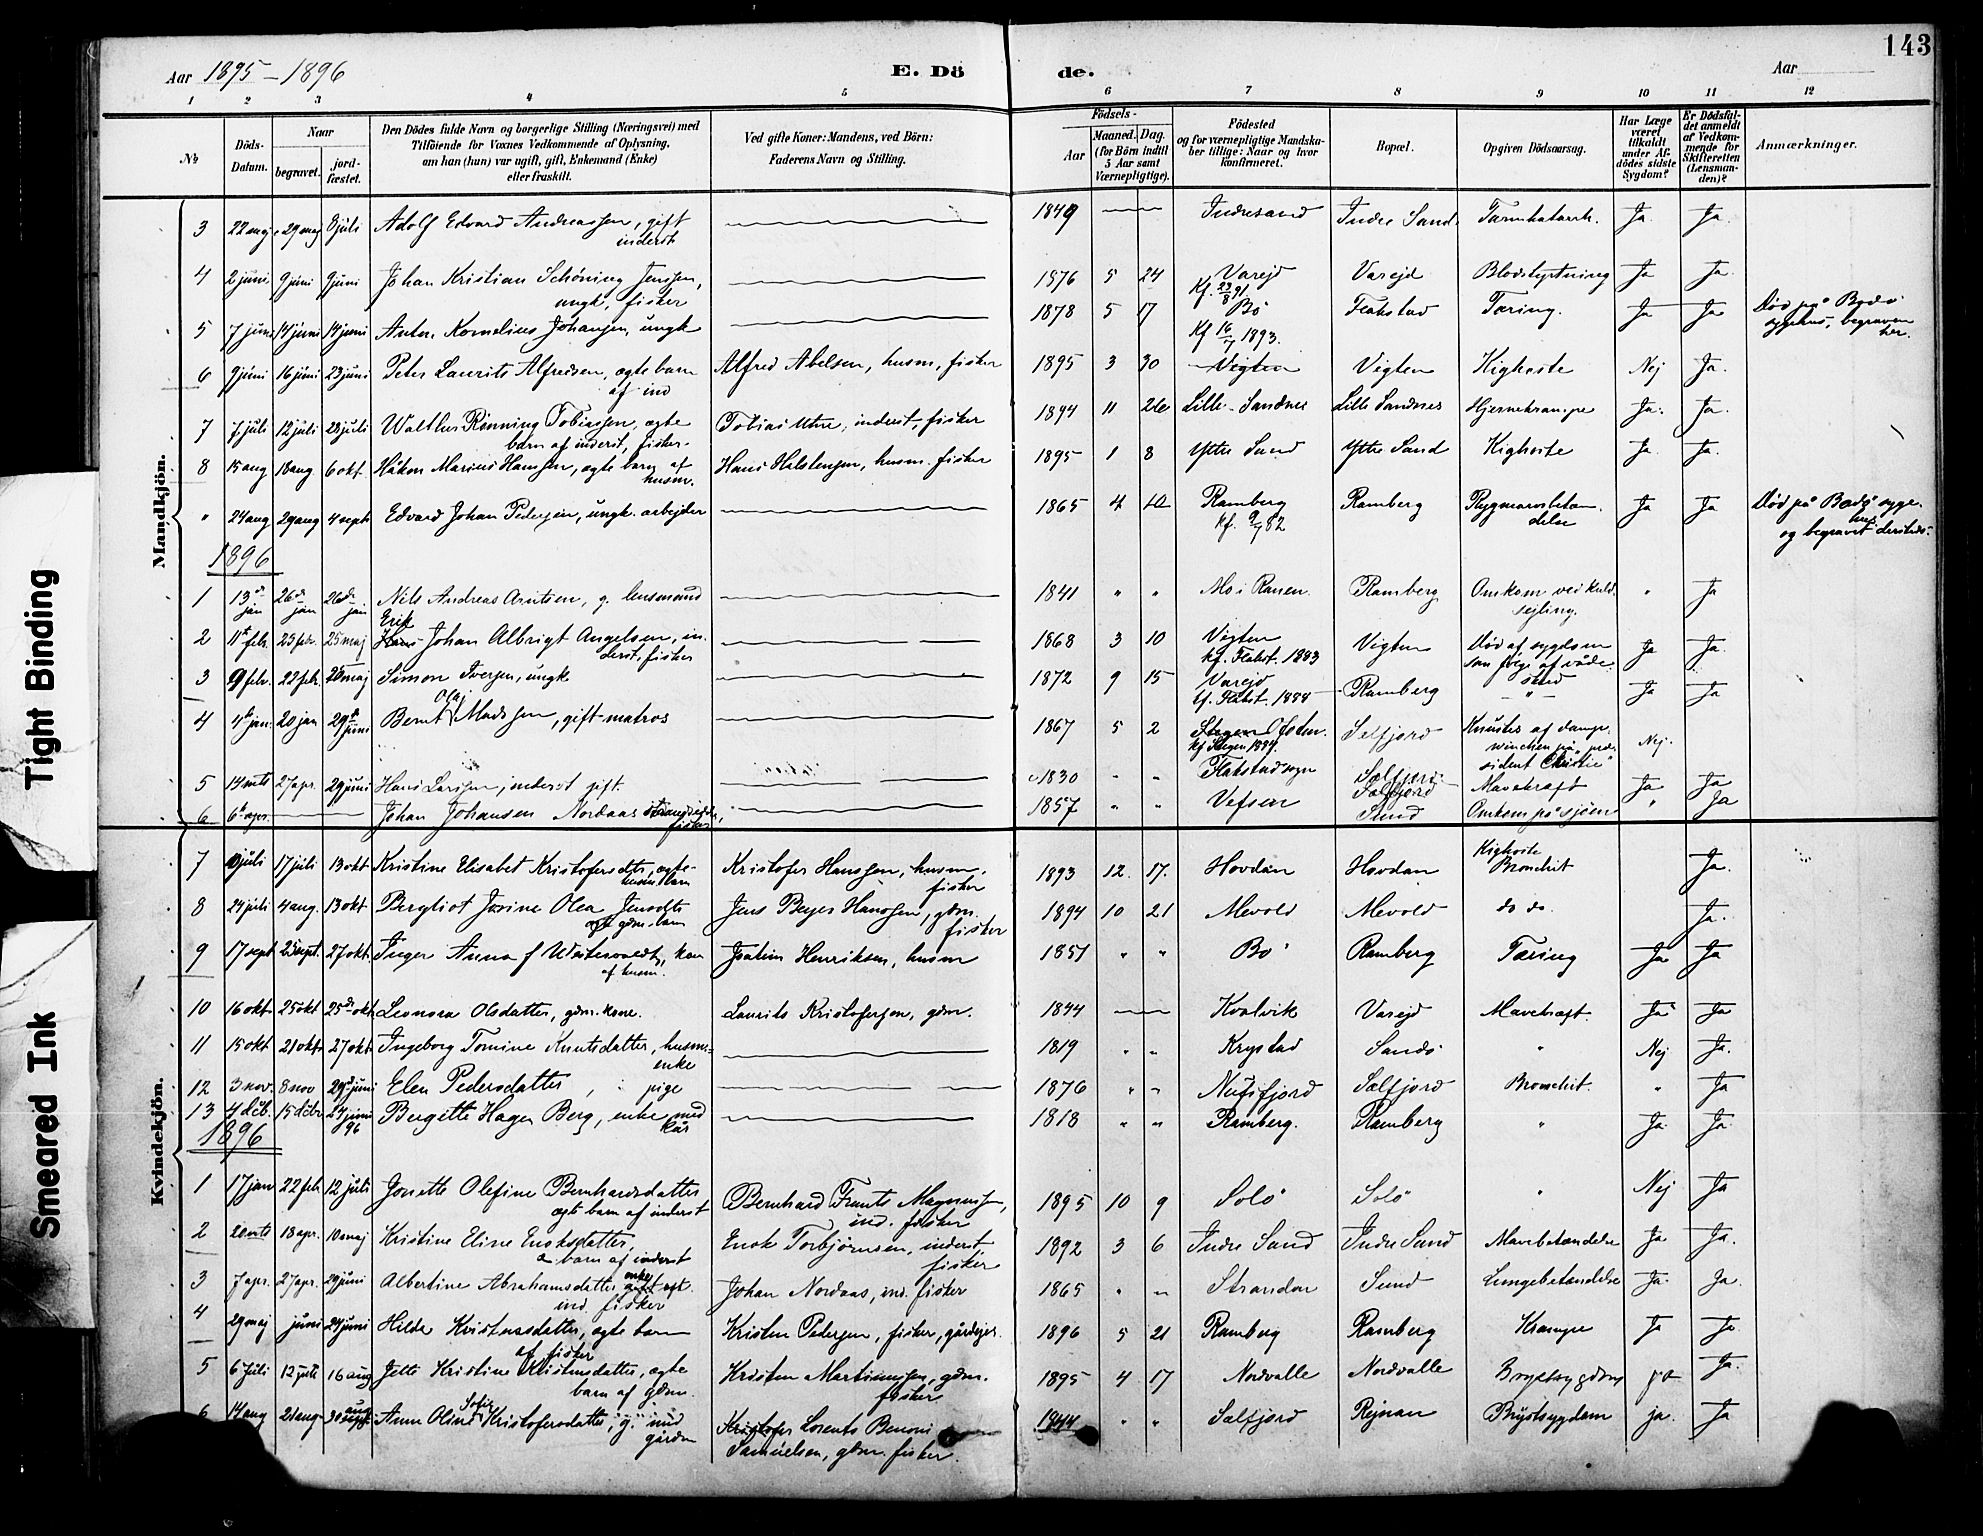 143
Aar 1895 – 1896
E. Dö
de.
Aar
1 2 3 4 5 6 7 8 9 10 11 12
№
Döds-Datum.
Naar
begravet.
jord-fæstet.
Den Dödes fulde Navn og borgerlige Stilling (Næringsvei) med
Tilföiende for Voxnes Vedkommende af Oplysning,
om han (hun) var ugift, gift, Enkemand (Enke)
eller fraskilt.
Ved gifte Koner: Mandens, ved Börn:
Faderens Navn og Stilling.
Födsels-
Aar
Maaned. Dag.
(for Börn indtil
5 Aar samt
Værnepligtige).
Födested
og for værnepligtige Mandska-
ber tillige: Naar og hvor
konfirmeret.
Bopæl.
Opgiven Dödsaarsag.
Har Læge
været
tilkaldt
under Af-
dödes sidste
Sygdom?
Er Dödsfal-
det anmeldt
af Vedkom-
mende for
Skifteretten
(Lensman-
den)?
Anmærkninger.
Mandkjön.
3 22 maj 29 maj 8 juli Adolf Edvard Andreassen, gift 1849 Indresand Indre Sand Tarmkatarrh. Ja. Ja.
inderst
4 2 juni 9 juni 9 juni Johan Kristian Schöning Jenssen, 1876 5 24 Varejd Varejd Blodstyrtning Ja Ja
ungk, fisker Kf. 23/8 91
5 7 juni 14 juni 14 juni Anton Kornelius Johansen, ungk 1878 5 17 Bö Flakstad Tæring. Ja Ja Död på Bodö
Kf 16/7 1893. sygehus, begraven
her.
6 9 juni 16 juni 23 juni Peter Laurits Alfredsen, ægte barn Alfred Abelsen, husm, fisker 1895 3 30 Vigten Vigten Kighoste Nej Ja.
af ind
7 7 juli 12 juli 28 juli Walther Rönning Tobiassen, ægte Tobias Uhre, inderst, fisker 1894 11 26 Lille-Sandnes Lille Sandnes Hjernekrampe Ja. Ja.
barn af inderst, fisker.
8 15 aug 18 aug 6 okt Håkon Marius Hansen, ægte barn af Hans Halstensen, husm. fisker 1895 1 8 Ytre Sand Ytre Sand Kighoste Ja Ja.
husm.
" 24 aug 29 aug 4 sept Edvard Johan Pedersen, ungk. arbejder 1865 4 10 Ramberg Ramberg Rygmarvsbetæn- Ja Ja Död på Bodö syge-
kf. 9/7 82 delse hus
og begravet dersteds.
1896
1 13de jan 26de jan 26de jan Nils Andreas Arntsen, g. lensmand 1841 " " Mo i Ranen. Ramberg Omkom ved kuld- " Ja
sejling.
Erik
2 11te febr. 23 febr. 25 maj Hans Johan Albrigt Angelsen, in- 1868 3 10 Vigten Vigten Död af sygdom Ja Ja.
derst, fisker kf. Flakst. 1883 som fölge af våde-
3 9 febr. 22 feb. 25 maj Simon Iversen, ungk 1872 9 15 Varejd Ramberg skud Ja Ja
kf. Flakst. 1888 – " –
Olaj
4 4de jan. 20 jan 29de juni Bernt Madssen, gift matros 1867 5 2 Stegen Ofoten. Selfjord Knustes af damp- Nej.
kf Stegen 1884. winchen på "præ-
sident Christie"
5 14 mts 27 apr. 29 juni Hans Larssen, inderst gift. 1830 " " Flakstadsogn Selfjord Mavekræft Ja Ja
6 6te apr. Johan Johansen Nordaas strandsidder, 1857 " " Vefsen Sund Omkom på sjöen " Ja
fisker
Kvindekjön.
7 juli 17 juli 13 okt Kristine Elisabet Kristofersdtr, ægte Kristofer Hanssen, husm. 1893 12 17. Hovdan Hovdan Kighoste Ja.
husm. barn fisker Bronchit
8 24 juli 4 aug. 13 okt Bergliot Josine Olea Jensdtr Jens Beyer Hanssen, gdm. 1894 10 21 Mevold Mevold do do. Ja.
ægte gdm. barn fisker
9 17 sept 23 sept. 27 okt. Inger Anna f Westervoldt, kon Joakim Henriksen, husm 1851 " " Bö Ramberg Tæring Ja Ja
af husm.
10 16 okt. 25 okt 25de okt Leonora Olsdatter, gdm. kone. Laurits Kristofersen, gdm. 1844 Kvalvik Varejd Mavekræft. Ja Ja
11 15 okt 21 okt. 27 okt. Ingeborg Tomine Knutsdatter, husm- 1819 " " Krystad Sandö " Nej Ja.
enke
12 3 nov. 8 nov 29de juni Elen Pedersdatter, pige 1876 " " Nusfjord Selfjord Bronchit. " Ja
13 4 dcb. 15 dcbr 24 juni 96 Bergette Hagen Berg, enke med 1818 " " Ramberg. Ramberg " Ja Ja.
kår
1896
1 17 jan 22 feb 12 juli Jonette Olefine Bernhardsdatter Bernhard Frants Magnussen, 1895 10 9 Solö Solö " Nej Ja
ægte barn af inderst ind. fisker
2 20 mts 18 apr. 10 maj Kristine Eline Enoksdatter, Enok Torbjörnsen, inderst, 1892 3 6 Indre Sand Indre Sand Mavebetændelse Ja Ja.
æ. barn af inderst fisker
3 7 apr. 27 apr. 29 juni Albertine Abrahamsdatter enke Johan Nordaas, ind. fisker 1865 " " Strandar Sund Lungebetændelse Ja. Ja.
ind. fisker
4 29 maj juni 24 juni Hilda Kristensdatter, ægte barn Kristen Pedersen, fisker, gårdejer. 1896 5 21 Ramberg Ramberg Krampe Ja Ja.
af fisker
5 6 Juli 12 juli 16 aug Jette Kristine Kristensdatter, ægte Kristen Martinussen, gdm. 1895 4 17 Nordvalle Nordvalle Brystsygdom ja Ja.
barn af gdm. fisker
Sofie
6 14 aug 21 aug 30 aug Anne Oline Kristofersdatter, g. ind Kristofer Lorents Benoni 1844 " " Selfjord Rejnan Brystsygdom ja. Ja
gården Samuelsen, gdm. fisker.
Tight Binding
Smeared Ink